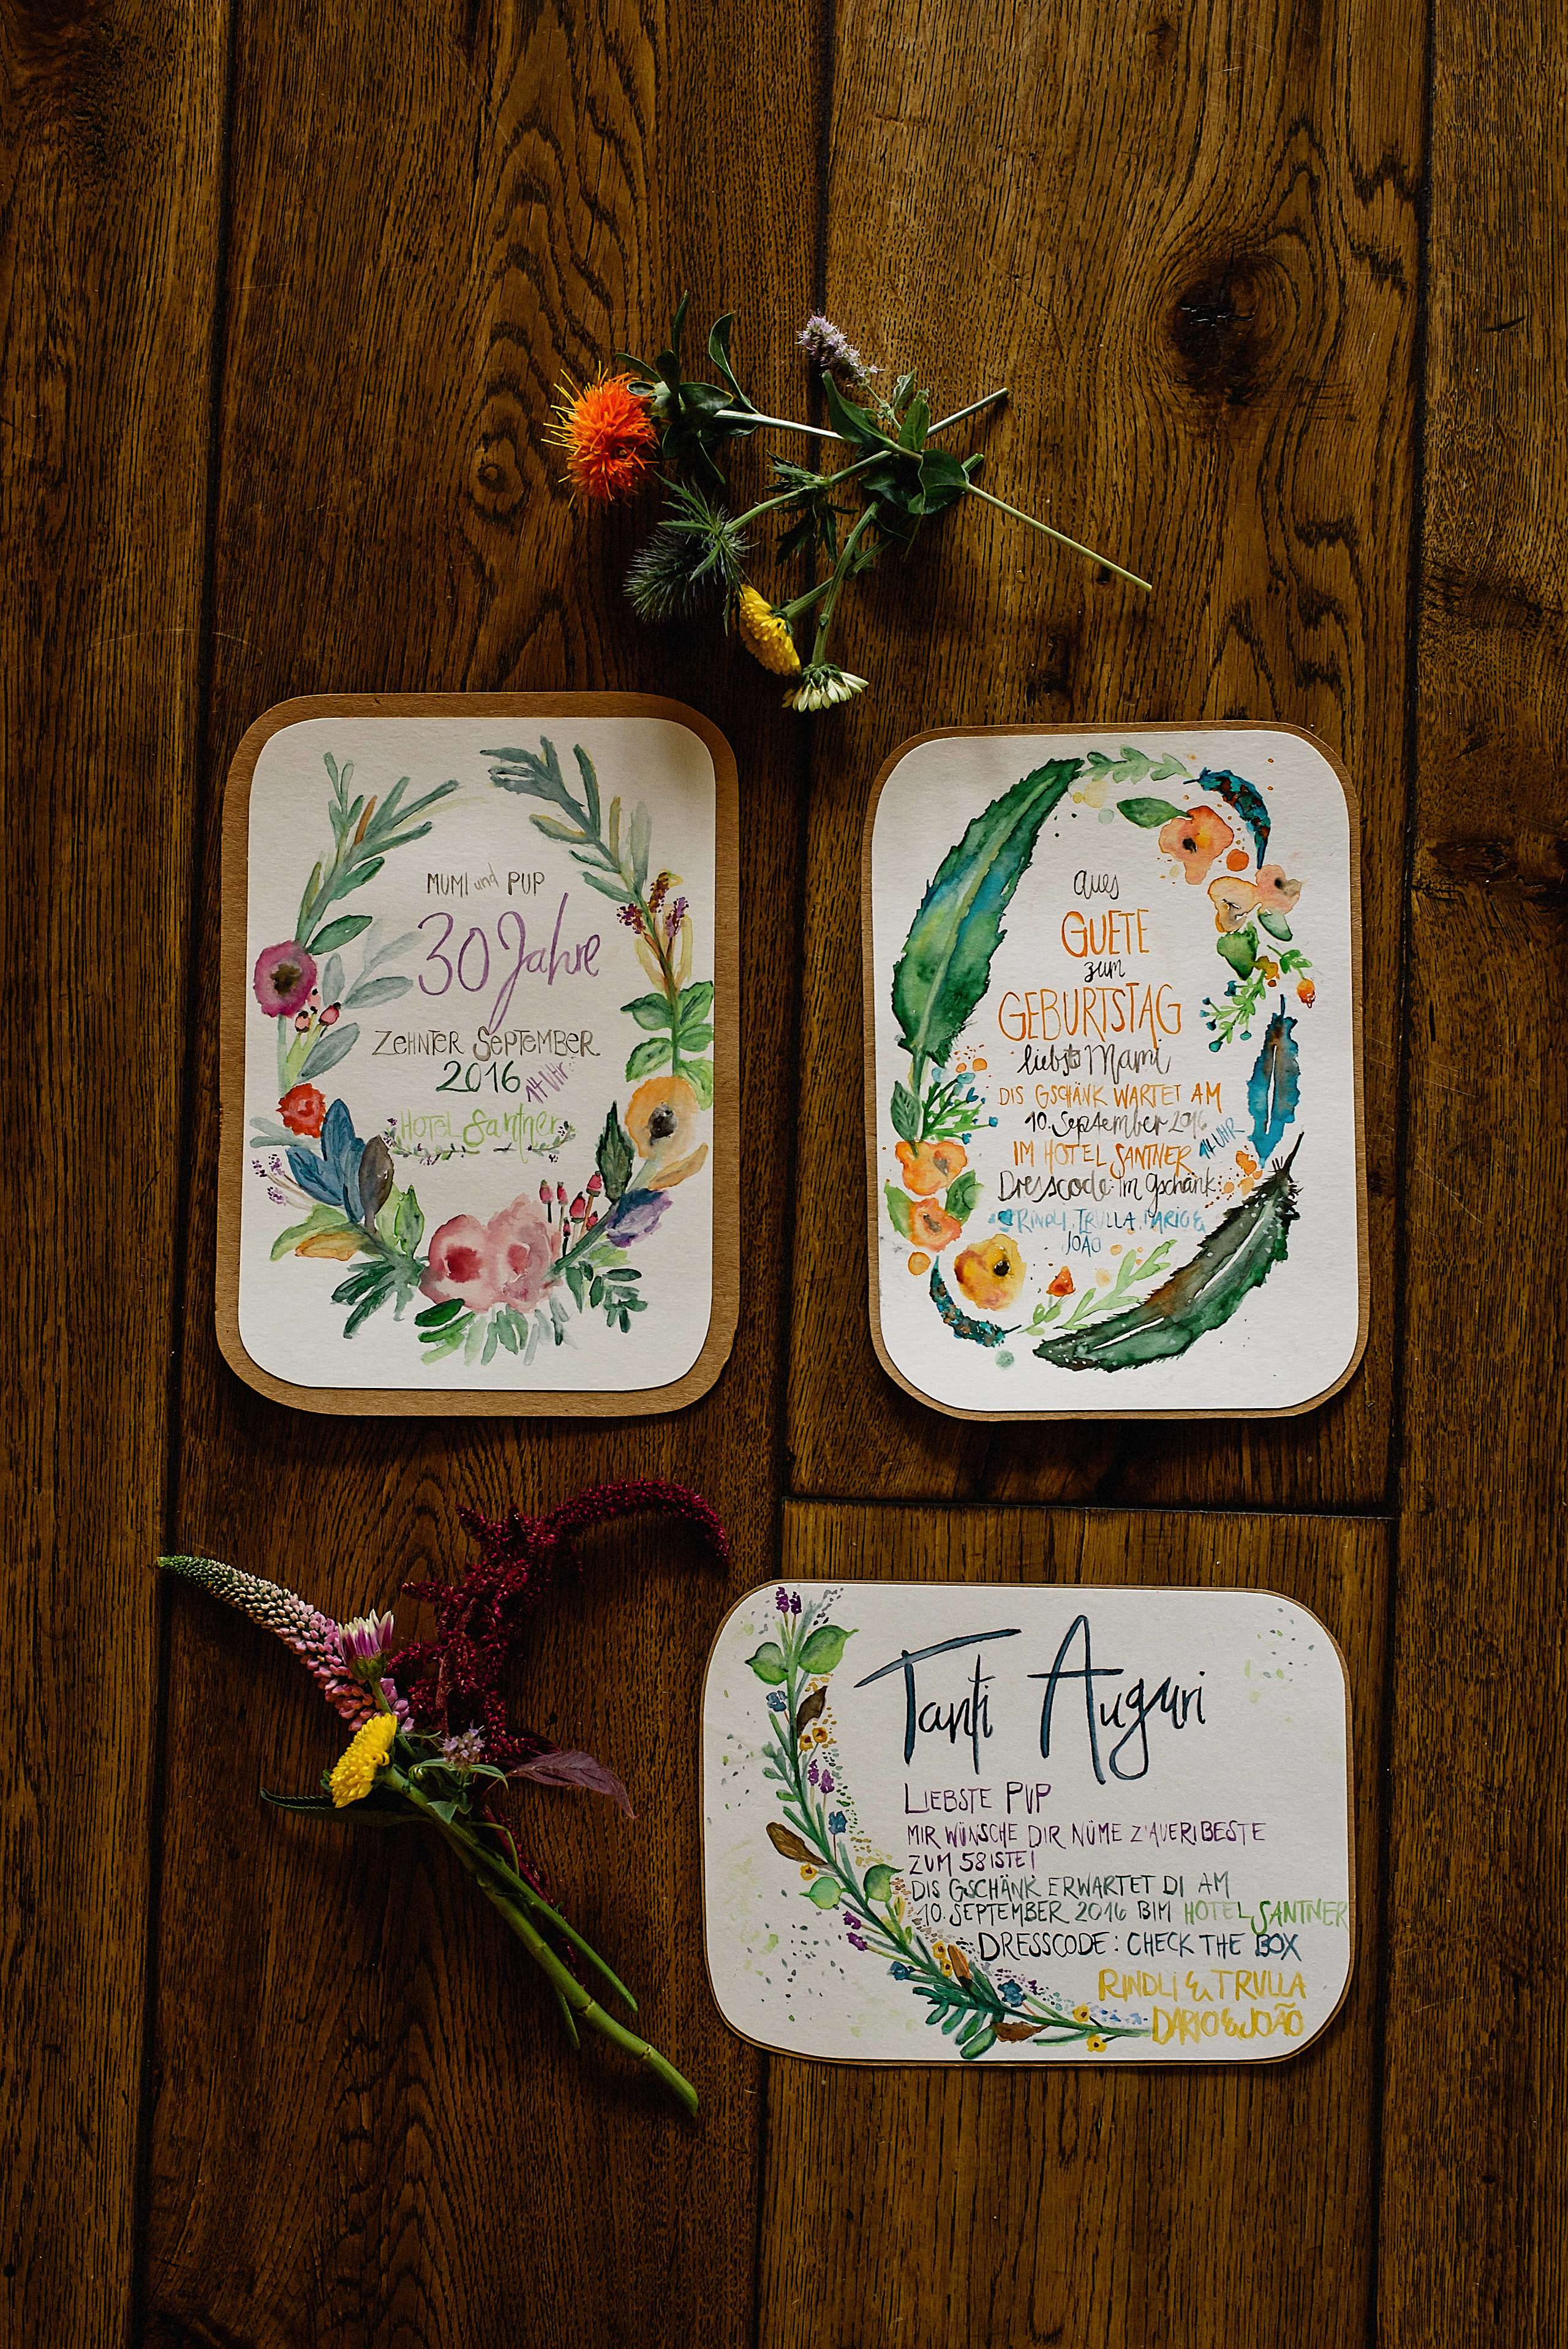 MUMI und PUP
30 Jahre
ZEHNTER SEPTEMBER
2016 14 Uhr
HOTEL Santner
aues
GUETE
zum
GEBURTSTAG
liebsts Mami
DIS GSCHÄNK WARTET AM
10. September 2016
IM HOTEL SANTNER 14 UHR
Dresscode: im Gschänk
RINDLI, TRULLA, DARIO &
JOÃO
Tanti Auguri
LIEBSTE PUP
MIR WÜNSCHE DIR NÜME Z'AUERIBESTE
ZUM 58ISTE!
DIS GSCHÄNK ERWARTET DI AM
10. SEPTEMBER 2016 BIM HOTEL SANTNER
DRESSCODE: CHECK THE BOX
RINDLI & TRULLA
DARIO & JOÃO